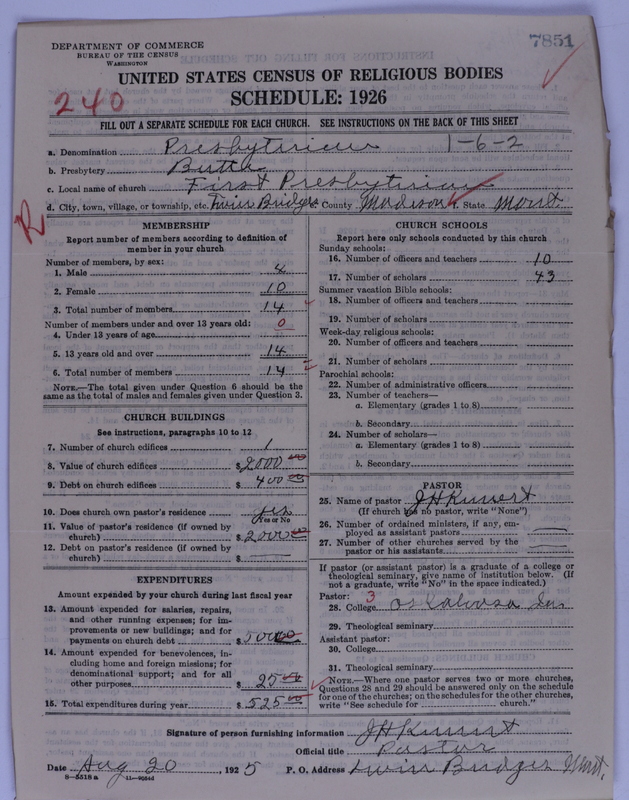 7851
DEPARTMENT OF COMMERCE
BUREAU OF THE CENSUS
WASHINGTON
UNITED STATES CENSUS OF RELIGIOUS BODIES
240
SCHEDULE: 1926
FILL OUT A SEPARATE SCHEDULE FOR EACH CHURCH. SEE INSTRUCTIONS ON THE BACK OF THIS SHEET
a. Denomination Presbyterian 1-6-2
b. Presbytery Butte
c. Local name of church First Presbyterian
d. City, town, village, or township, etc. Twin Bridges County Madison f. State Mont.
R
MEMBERSHIP
Report number of members according to definition of
member in your church
Number of members, by sex:
1. Male 4
2. Female 10
3. Total number of members 14
Number of members under and over 13 years old: 0
4. Under 13 years of age
5. 13 years old and over 14
6. Total number of members 14
NOTE.—The total given under Question 6 should be the
same as the total of males and females given under Question 3.
CHURCH BUILDINGS
See instructions, paragraphs 10 to 12
7. Number of church edifices 1
8. Value of church edifices $2000 00
9. Debt on church edifices $400 00
10. Does church own pastor's residence yes
Yes or No
11. Value of pastor's residence (if owned by
church) $2000 00
12. Debt on pastor's residence (if owned by
church) $
EXPENDITURES
Amount expended by your church during last fiscal year
13. Amount expended for salaries, repairs,
and other running expenses; for im-
provements or new buildings; and for
payments on church debt $500 00
14. Amount expended for benevolences, in-
cluding home and foreign missions; for
denominational support; and for all
other purposes $25 00
15. Total expenditures during year $525 00
CHURCH SCHOOLS
Report here only schools conducted by this church
Sunday schools:
16. Number of officers and teachers 10
17. Number of scholars 43
Summer vacation Bible schools:
18. Number of officers and teachers
19. Number of scholars
Week-day religious schools:
20. Number of officers and teachers
21. Number of scholars
Parochial schools:
22. Number of administrative officers
23. Number of teachers—
a. Elementary (grades 1 to 8)
b. Secondary
24. Number of scholars—
a. Elementary (grades 1 to 8)
b. Secondary
PASTOR
25. Name of pastor J H Kunert
(If church has no pastor, write "None")
26. Number of ordained ministers, if any, em-
ployed as assistant pastors
27. Number of other churches served by the
pastor or his assistants
If pastor (or assistant pastor) is a graduate of a college or
theological seminary, give name of institution below. (If
not a graduate, write "No" in the space indicated.)
Pastor: 3
28. College Oskaloosa Ia.
29. Theological seminary
Assistant pastor:
30. College
31. Theological seminary
NOTE.—Where one pastor serves two or more churches,
Questions 28 and 29 should be answered only on the schedule
for one of the churches; on the schedules for the other churches,
write "See schedule for church."
Signature of person furnishing information J H Kunert
Official title Pastor
Date Aug 20, 1925 P. O. Address Twin Bridges Mont.
8—5518 a